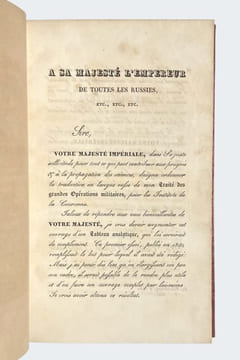 A SA MAJESTÉ L'EMPEREUR
DE TOUTES LES RUSSIES,
ETC., ETC., ETC.
Sire,
VOTRE MAJESTÉ IMPÉRIALE, dans Sa juste
sollicitude pour tout ce qui peut contribuer aux progrès
& à la propagation des sciences, daigna ordonner
la traduction en langue russe de mon Traité des
grandes Opérations militaires, pour les Instituts de la
Couronne.
Jaloux de répondre aux vues bienveillantes de
VOTRE MAJESTÉ, je crus devoir augmenter cet
ouvrage d'un Tableau analytique, qui lui servirait
de complément. Ce premier essai, publié en 1830,
remplissait le but pour lequel il avait été rédigé:
Mais j'ai pensé dès lors qu'en élargissant un peu
son cadre, il serait possible de le rendre plus utile
et d'en faire un ouvrage complet par lui-même.
Je crois avoir obtenu ce résultat.